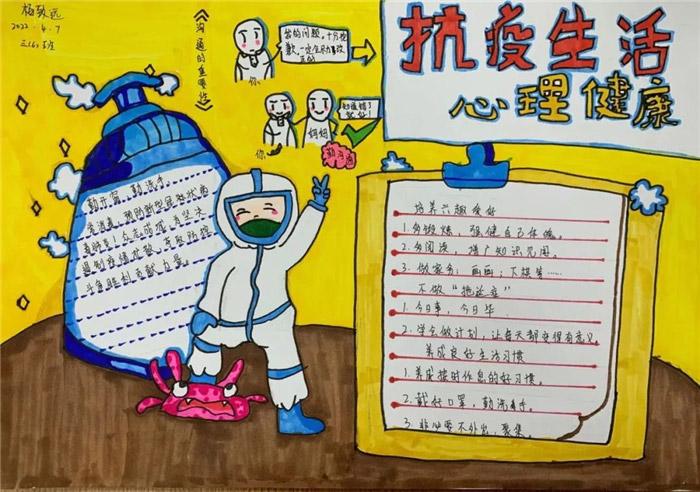 杨致远
2022.4.7
三(6)班
《沟通的重要性》
我的问题,十分抱
歉,一定尽力改
正的
你
知道错了
就好!
妈妈
你
勤沟通
抗疫生活
心理健康
勤开窗 勤洗手
常消毒,预防新型冠状病
毒肺炎!众志成城,有坚决
遏制疫情扩散,夺取防控
斗争胜利贡献力量。
培养兴趣爱好
1.多锻炼,强健自己体魄。
2.多阅读,增广知识见闻。
3.做家务;画画;下棋等……
不做“拖延症”
1.今日事,今日毕
2.学会做计划,让每天都变得有意义。
养成良好生活习惯
1.养成按时作息的好习惯。
2.戴好口罩,勤洗手。
3.非必要不外出,聚集。